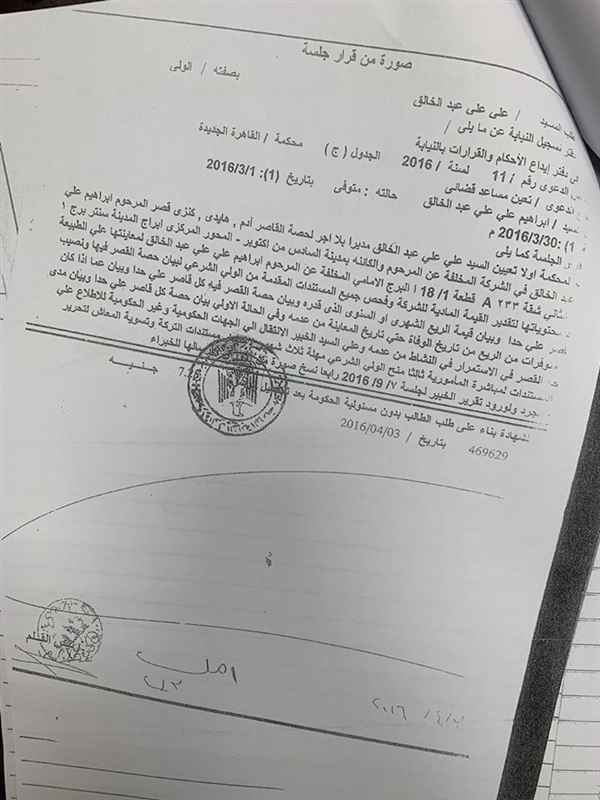 صورة من قرار جلسة
بصفته / الولى
طلب السيد / علي علي عبد الخالق
دفتر تسجيل النيابة عن ما يلى /
فى دفتر إيداع الأحكام والقرارات بالنيابة
الدعوى رقم / 11 لسنة / 2016 الجدول ( ج ) محكمة / القاهرة الجديدة
الدعوى / تعين مساعد قضائى
السيد / ابراهيم علي علي عبد الخالق حالته : متوفى بتاريخ (1): 2016/3/1
1) :2016/3/30 م
الجلسة كما يلى
المحكمة اولا تعيين السيد علي علي عبد الخالق مديرا بلا اجر لحصة القاصر آدم , هايدى , كنزى قصر المرحوم ابراهيم علي
عبد الخالق في الشركة المخلفة عن المرحوم والكائنه بمدينة السادس من اكتوبر - المحور المركزى ابراج المدينة سنتر برج ١
الثاني شقة ٢٣٣ A قطعة 1/ 18 ا البرج الامامي المخلفة عن المرحوم ابراهيم علي علي عبد الخالق لمعاينتها علي الطبيعة
محتوياتها لتقدير القيمة المادية للشركة وفحص جميع المستندات المقدمة من الولي الشرعي لبيان حصة القصر فيها ونصيب
قاصر علي حدا وبيان قيمة الريع الشهرى او السنوى الذى قدره وبيان حصة القصر فيه كل قاصر علي حدا وبيان عما اذا كان
متوفرات من الريع من تاريخ الوفاة حتي تاريخ المعاينة من عدمه وفي الحالة الاولي بيان حصة كل قاصر علي حدا وبيان مدى
القصر في الاستمرار في النشاط من عدمه وعلي السيد الخبير الانتقال الي الجهات الحكومية وغير الحكومية للاطلاع علي
المستندات لمباشرة المأمورية ثالثا منح الولي الشرعي مهلة ثلاث مستندات التركة وتسوية المعاش لتحرير
الجرد ولورود تقرير الخبير لجلسة ٧/ 9/ 2016 رابعا نسخ صورة للخبراء
الشهادة بناء على طلب الطالب بدون مسئولية الحكومة بعد جنيه
469629 بتاريخ / 2016/04/03
القلم
امل
٢٠١٦ /٤/